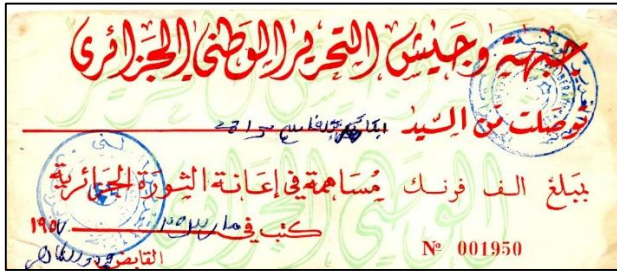 جبهة وجيش التحرير الوطني الجزائري
توصلت من السيد
بمبلغ الف فرنك مساهمة في إعانة الثورة الجزائرية
كتب في مارس ١٩٥٧
القابض
Nº 001950